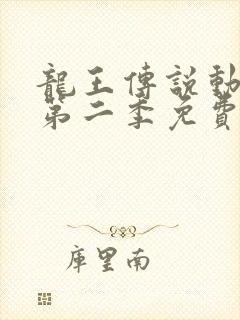 龍王傳說動
第二季免費
库里南